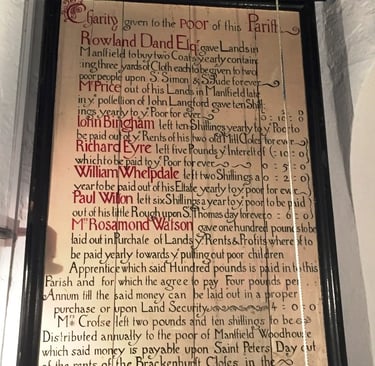 Charity given to the POOR of this Parish
Rowland Dand Esq.r gave Lands in
Mansfield to buy two Coats yearly contain
ing three yards of Cloth each to be given to two
poor people upon St Simon & St Jude for ever
Mr Price out of his Lands in Mansfield late
in ye possession of John Langford gave ten Shil:
ings yearly to ye Poor for ever 0:10:0
John Bingham left ten Shillings yearly to ye Poor to
be paid out of ye Rents of his two old Mill Closes for ever
Richard Eyre left five Pounds ye Interest of
which to be paid to ye Poor for ever 0:5:0
William Whelpdale left two Shillings a
year to be paid out of his Estate yearly to ye Poor for ever
Paul Wilson left six Shillings a year to ye poor to be paid
out of his little Rough upon St Thomas day for ever 0:6:0
Mrs Rosamond Watson gave one hundred pounds to be
laid out in Purchase of Lands ye Rents & Profits where of to
be paid yearly towards ye putting out poor children
Apprentice which said Hundred pounds is paid in to this
Parish and for which the agree to pay Four pounds per
Annum till the said money can be laid out in a proper
purchase or upon Land Security 4:0:0
Mrs Crofse left two pounds and ten shillings to be
Distributed annually to the poor of Mansfield Woodhouse
which said money is payable upon Saint Peters Day out
of the rents of the Brackenhurst Closes in the